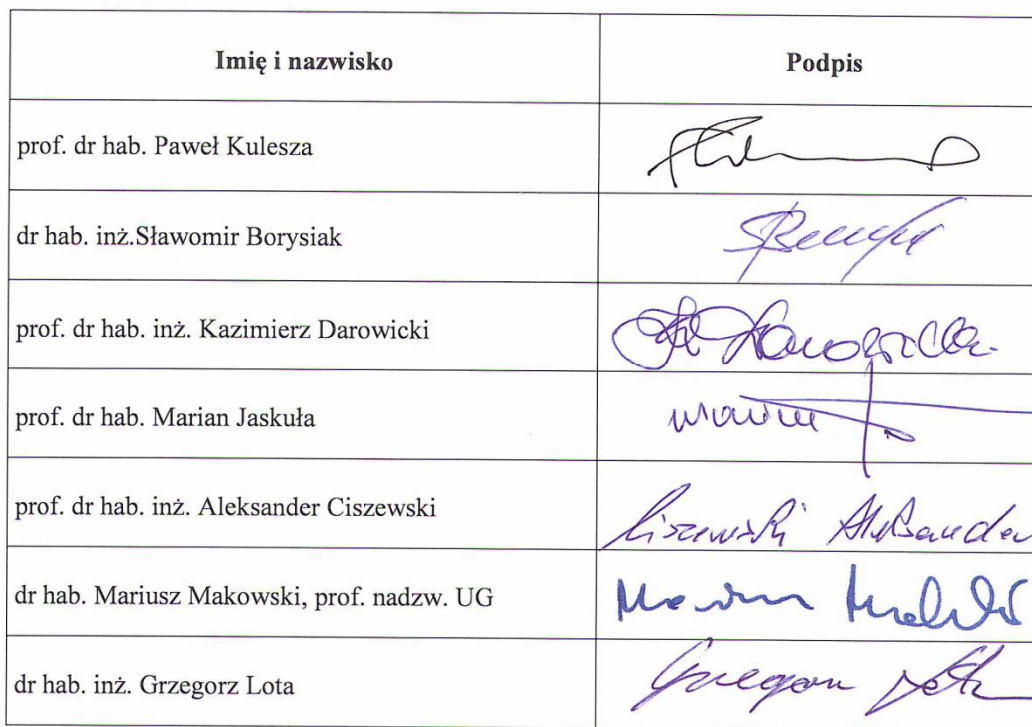 Imię i nazwisko Podpis
prof. dr hab. Paweł Kulesza
dr hab. inż.Sławomir Borysiak
prof. dr hab. inż. Kazimierz Darowicki
prof. dr hab. Marian Jaskuła
prof. dr hab. inż. Aleksander Ciszewski Ciszewski Aleksander
dr hab. Mariusz Makowski, prof. nadzw. UG
dr hab. inż. Grzegorz Lota Grzegorz Lota